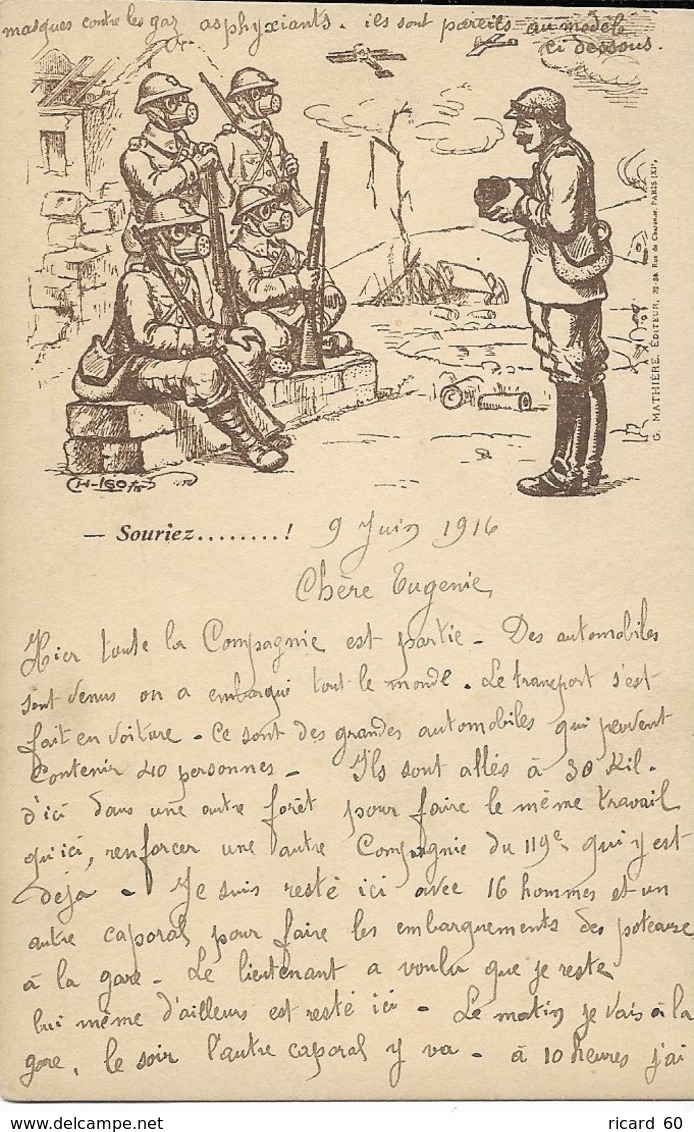 masques contre les gaz asphyxiants. ils sont pareils au modèle
ci dessous.
G. MATHIÈRE, ÉDITEUR, Rue de Charonne, PARIS (XIe)
— Souriez........!
9 Juin 1916
Chère Eugenie
Hier toute la Compagnie est partie - Des automobiles
sont venus on a embarqué tout le monde. Le transport s'est
fait en voiture - Ce sont des grandes automobiles qui peuvent
Contenir 40 personnes - Ils sont allés à 30 Kil.
d'ici dans une autre forêt pour faire le même travail
qu'ici, renforcer une autre Compagnie du 119e qui y est
déja - Je suis resté ici avec 16 hommes et un
autre caporal pour faire les embarquements des poteaux
à la gare - Le lieutenant a voulu que je reste
lui même d'ailleurs est resté ici - Le matin je vais à la
gare, le soir l'autre caporal y va - à 10 heures j'ai
ricard 60